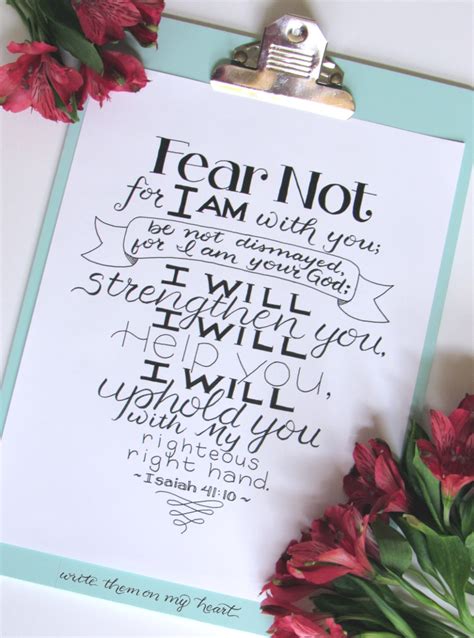 Fear Not
for I AM with you;
be not dismayed,
for I am your God;
I WILL
strengthen you,
I WILL
Help you,
I WILL
uphold you
with My
righteous
right hand.
~ Isaiah 41:10 ~
write them on my heart